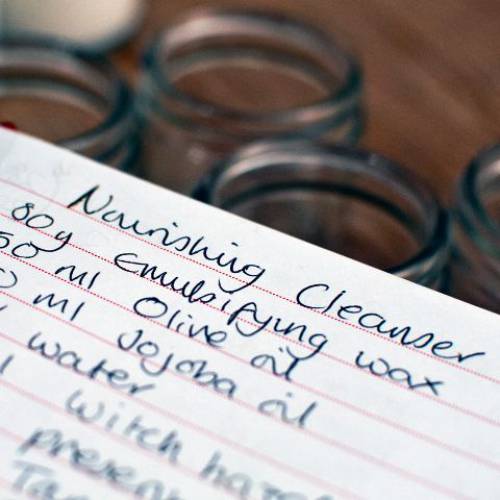 Nourishing Cleanser
80g Emulsifying wax
50 ml Olive oil
ml Jojoba oil
water
Witch